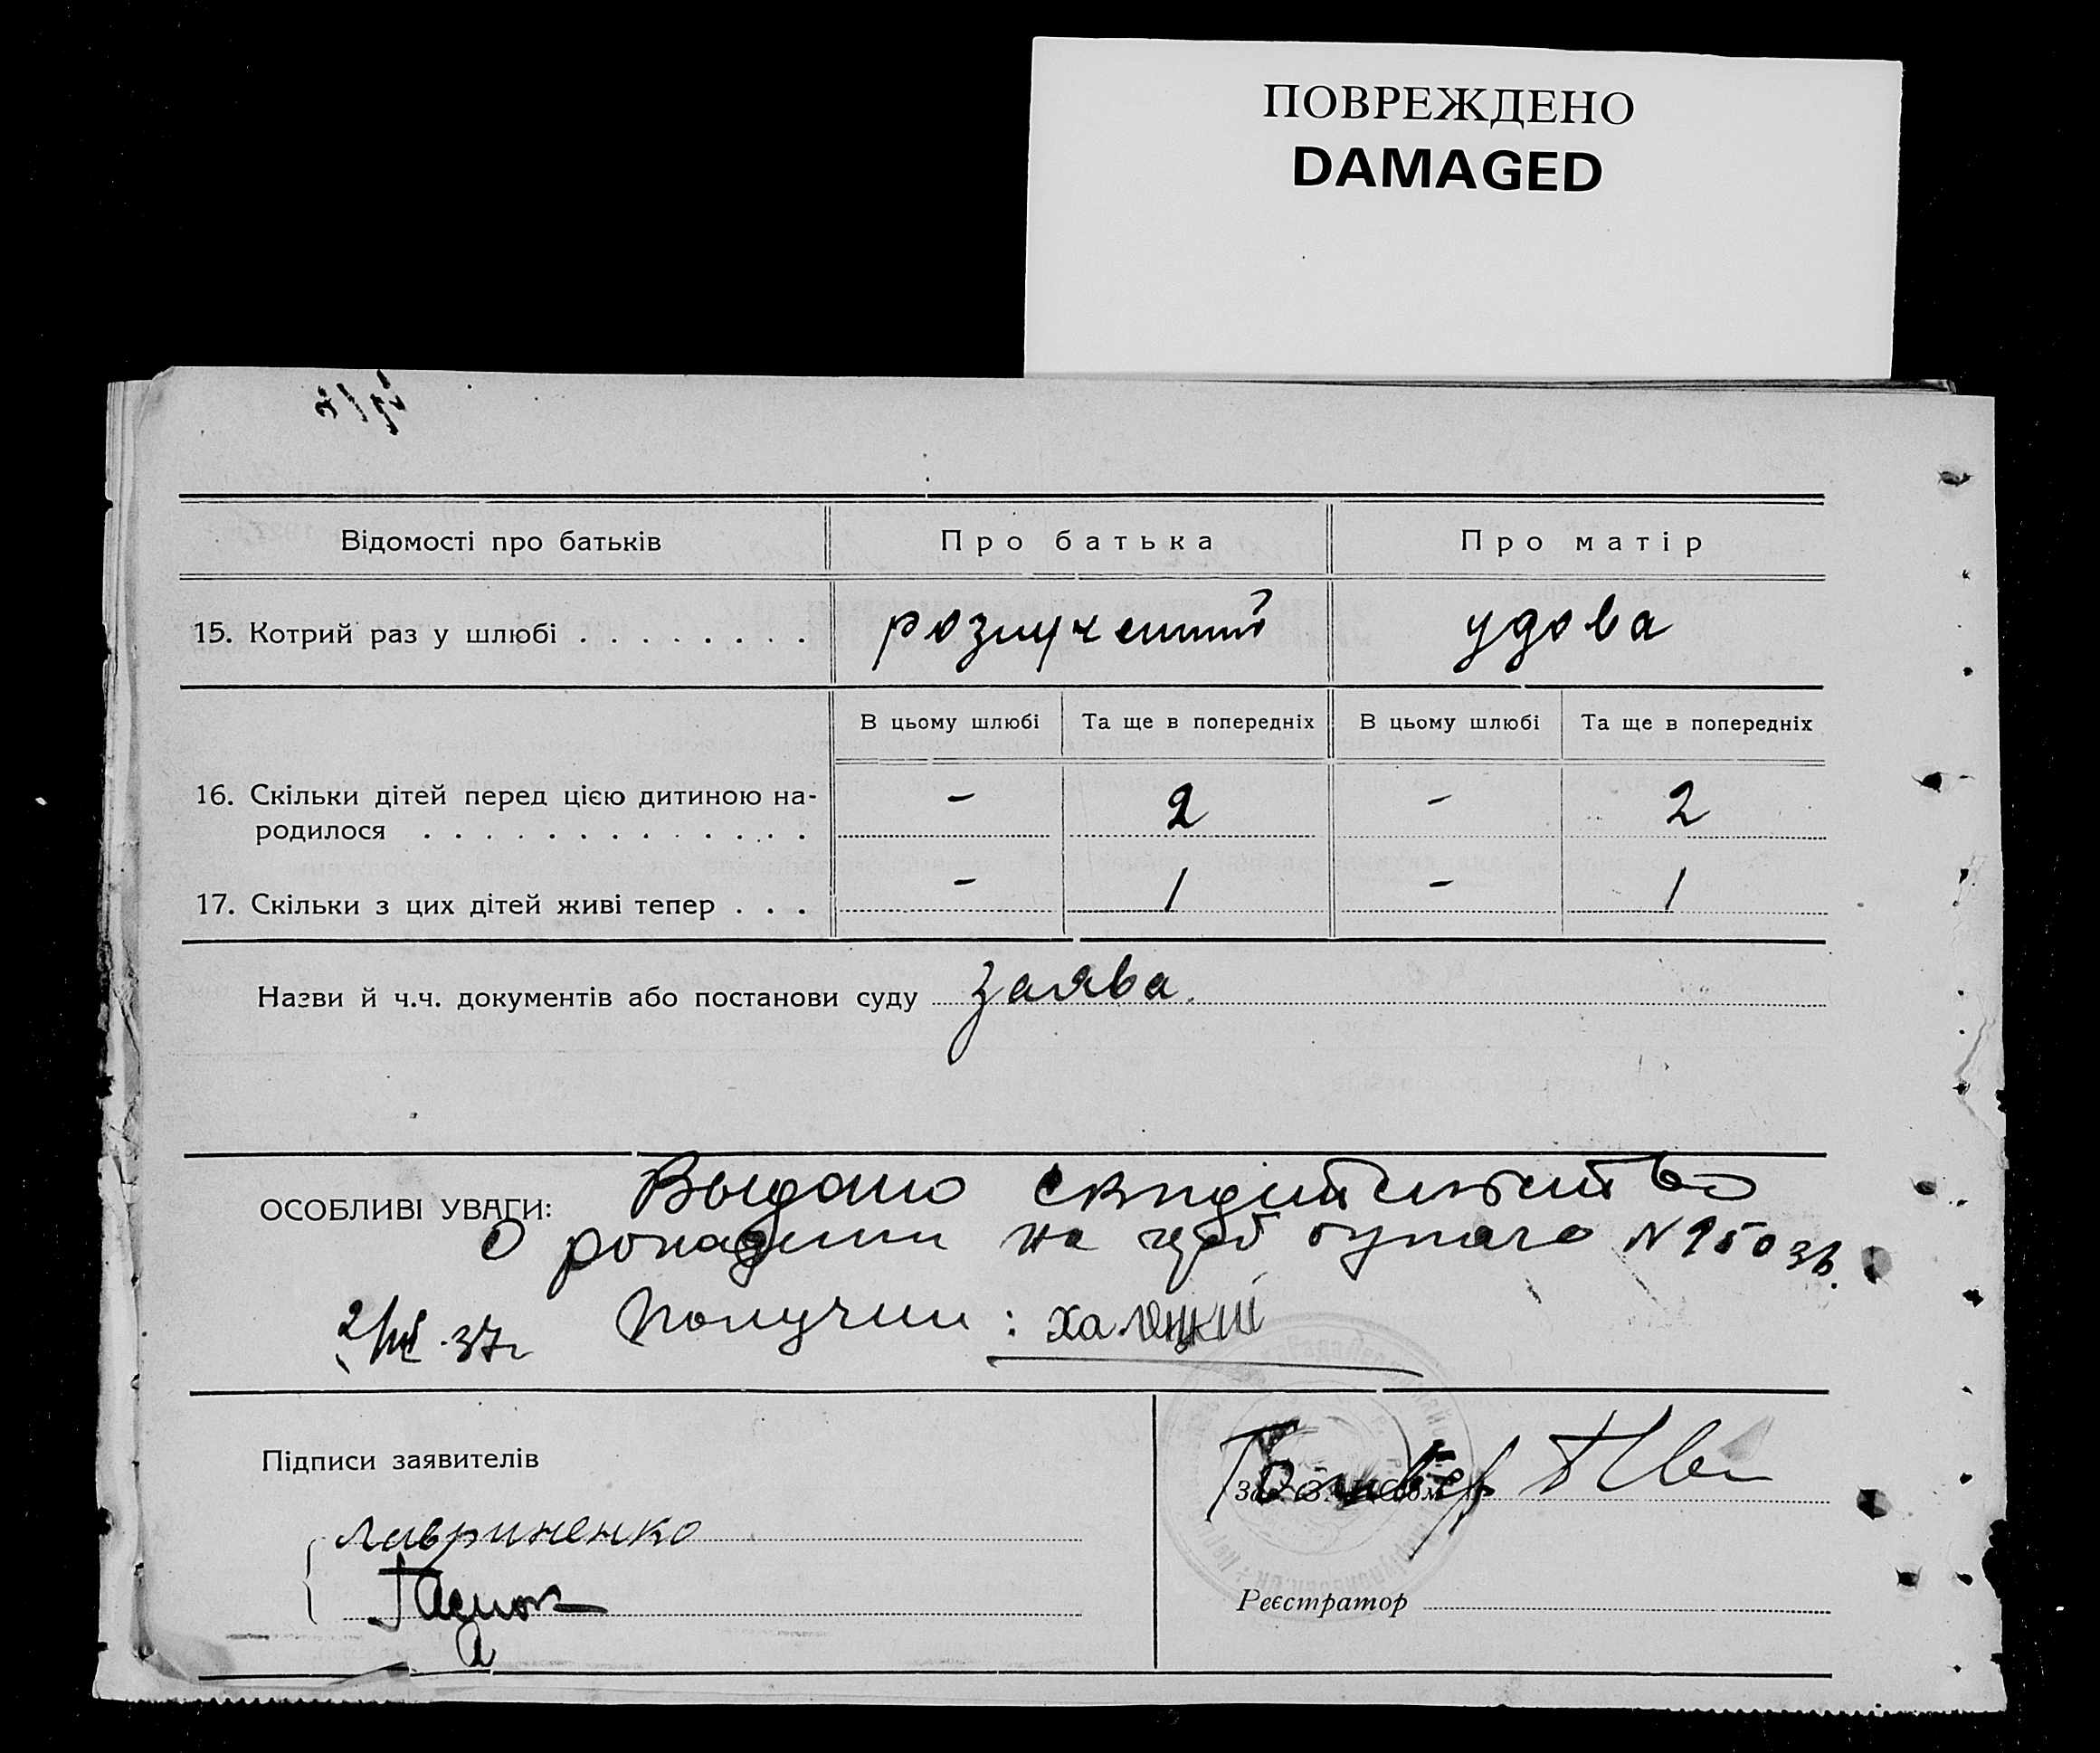 ПОВРЕЖДЕНО
DAMAGED
Відомості про батьків
Про батька
Про матір
15. Котрий раз у шлюбі
розлучений
удова
В цьому шлюбі
Та ще в попередніх
В цьому шлюбі
Та ще в попередніх
16. Скільки дітей перед цією дитиною на-
родилося
-
2
-
2
17. Скільки з цих дітей живі тепер
-
1
-
1
Назви й ч.ч. документів або постанови суду заява.
ОСОБЛИВІ УВАГИ: Выдано свидетельство
о рождении на бумаге №
37г Получил:
Підписи заявителів
Лавриненко
Реєстратор